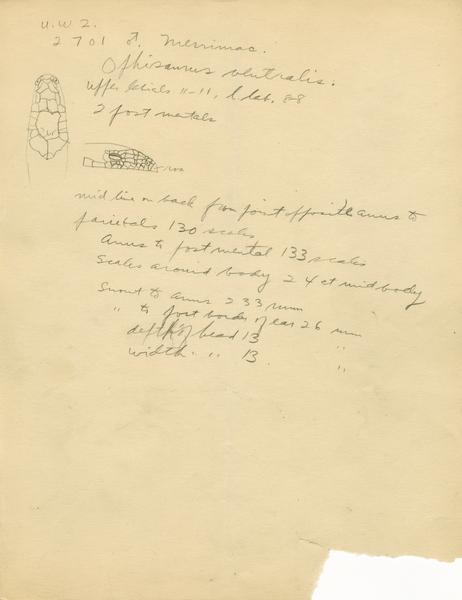 U. W. Z.
2701 ft. Merrimac.
Ophisaurus ventralis.
Upper labials 11-11, l. lab. 8-8
2 post mentals
ros
mid line on back from point opposite anus to
parietals 130 scales
Anus to post mental 133 scales
Scales around body 24 at midbody
Snout to anus 233 mm
" to post border of ear 26 mm
depth of head 13 "
width " 13 "